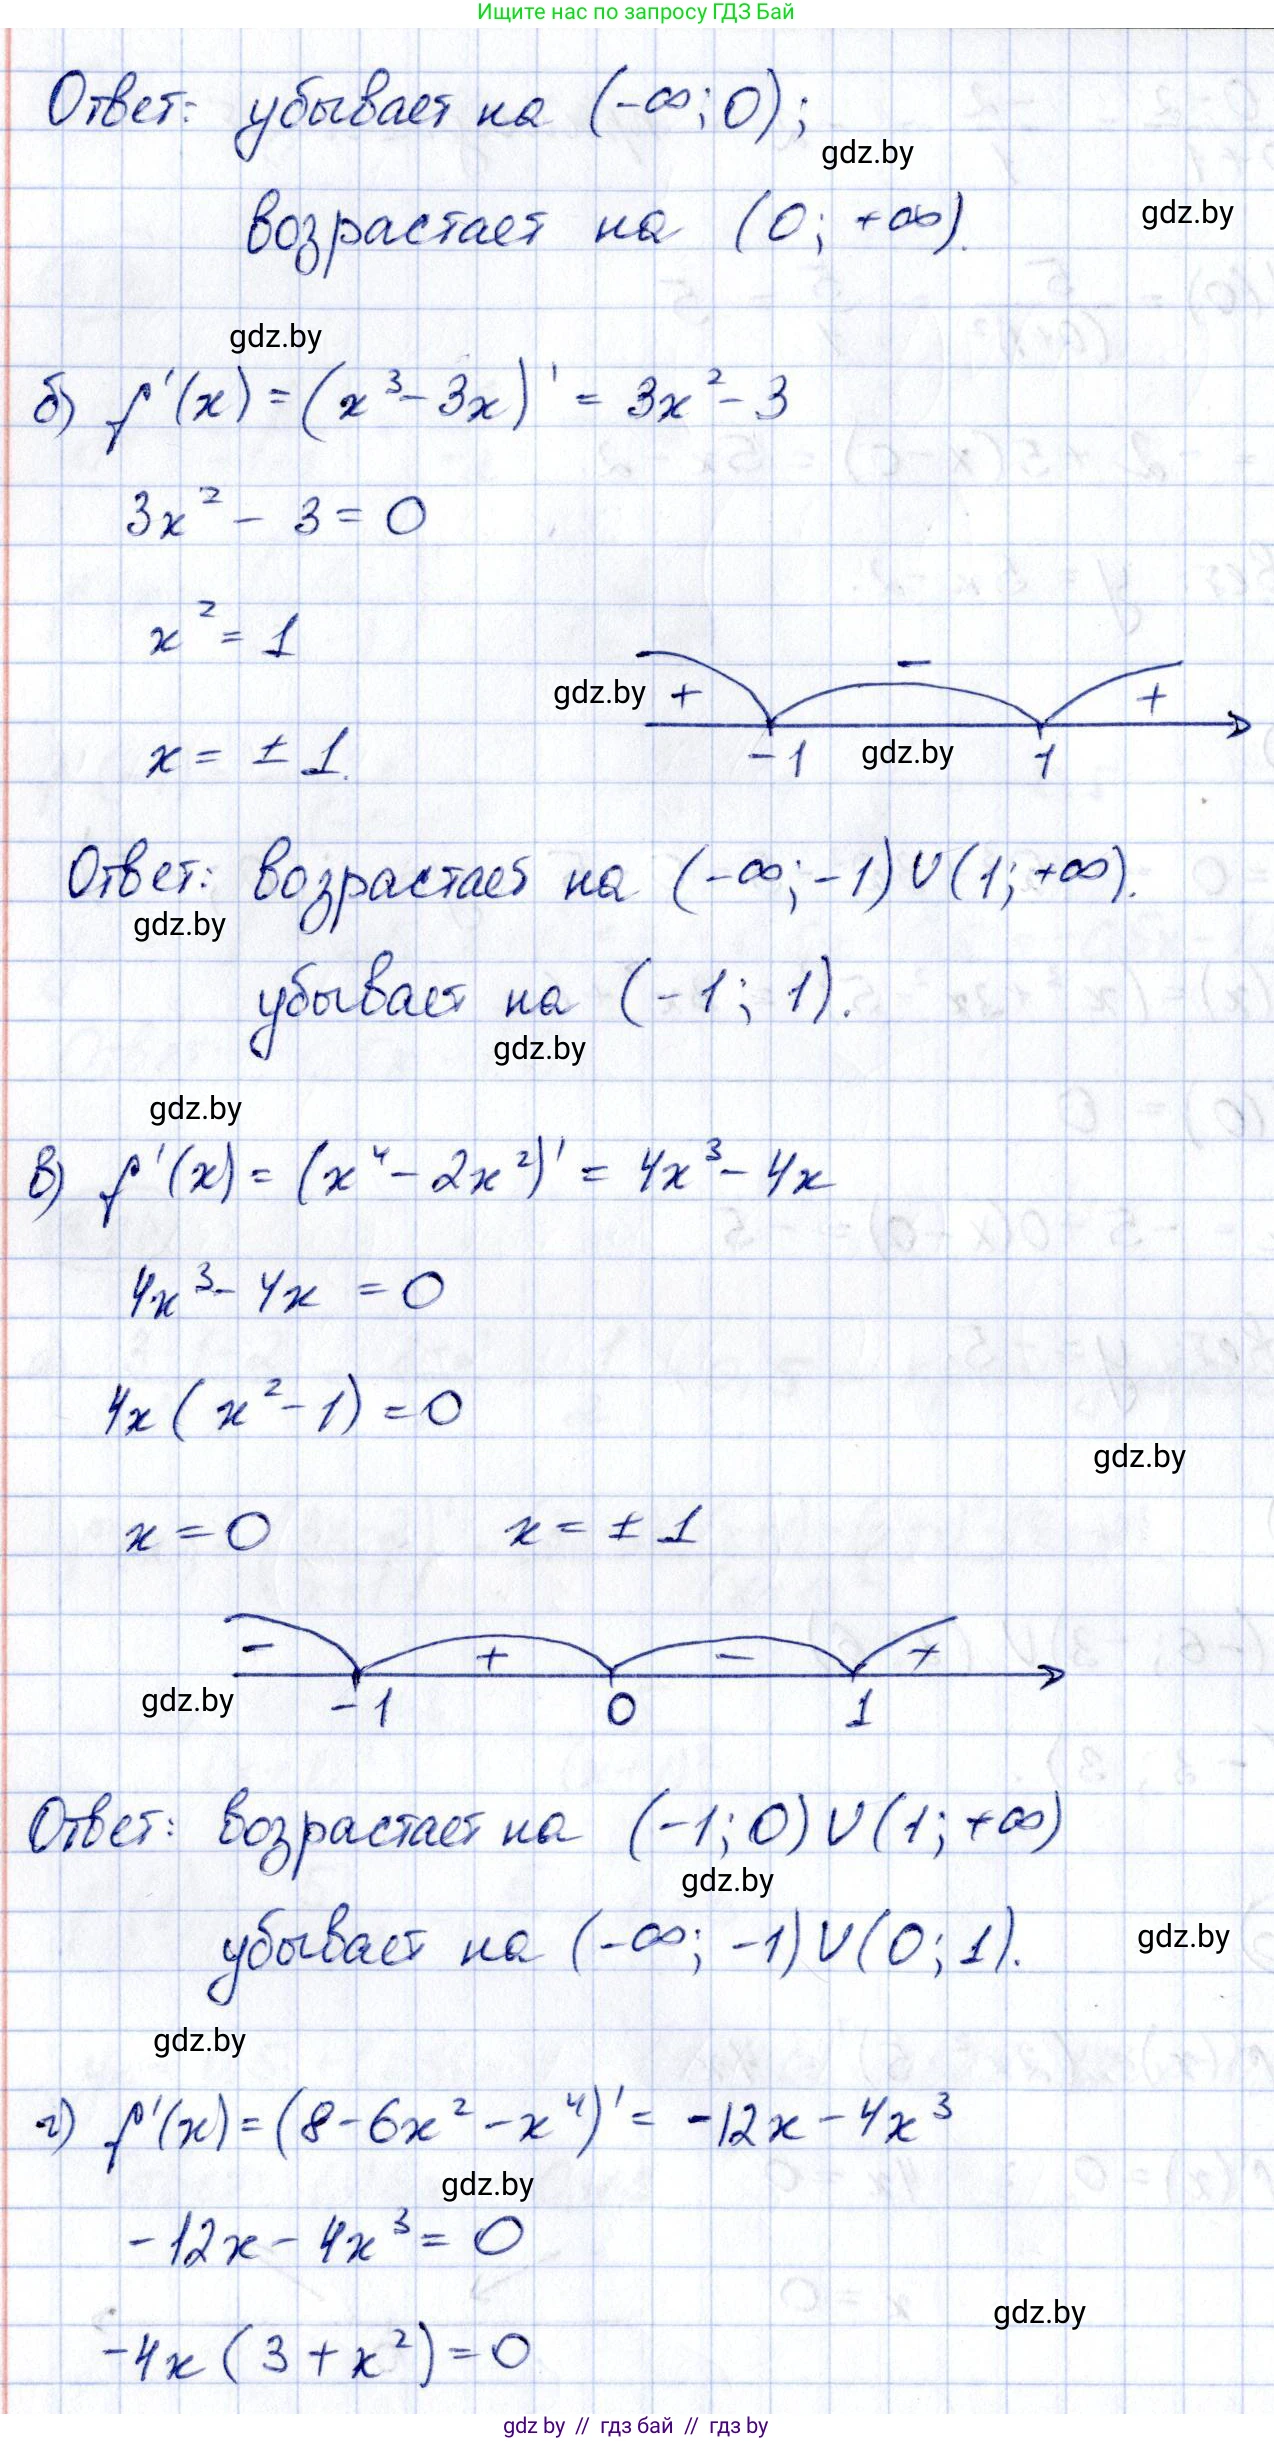 Ищите нас по запросу ГДЗ Бай
Ответ: убывает на (-∞; 0);
gdz.by
возрастает на (0; +∞).
gdz.by
gdz.by
б) f'(x) = (x³ - 3x)' = 3x² - 3
3x² - 3 = 0
x² = 1
gdz.by
+ - +
x = ± 1.
-1 gdz.by 1
Ответ: возрастает на (-∞; -1) ∪ (1; +∞).
gdz.by
убывает на (-1; 1).
gdz.by
gdz.by
в) f'(x) = (x⁴ - 2x²)' = 4x³ - 4x
4x³ - 4x = 0
4x (x² - 1) = 0
gdz.by
x = 0 x = ± 1
- + - +
gdz.by
-1 0 1
Ответ: возрастает на (-1; 0) ∪ (1; +∞)
gdz.by
убывает на (-∞; -1) ∪ (0; 1).
gdz.by
gdz.by
г) f'(x) = (8 - 6x² - x⁴)' = -12x - 4x³
gdz.by
-12x - 4x³ = 0
gdz.by
-4x (3 + x²) = 0
gdz by // гдз бай // гдз by